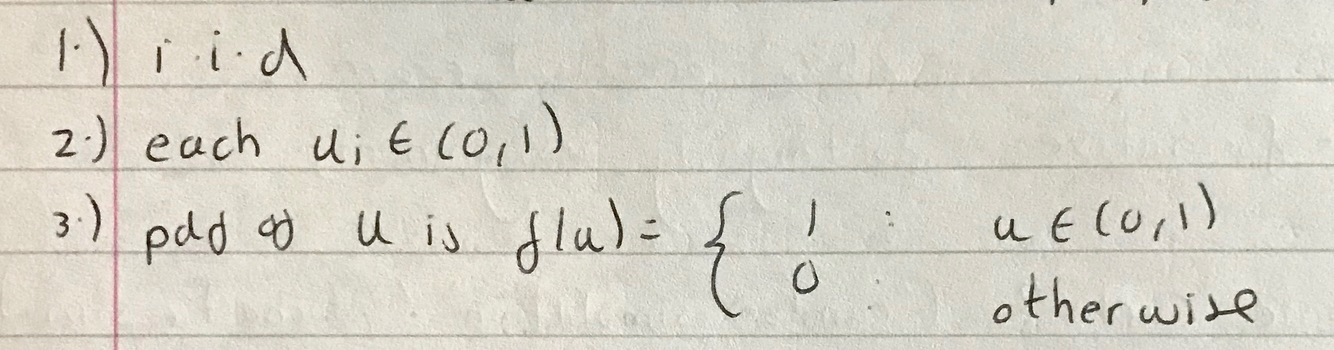 1.) i.i.d
2.) each uᵢ ∈ (0,1)
3.) pdf of U is f(u) = { 1 : u ∈ (0,1)
0 : otherwise